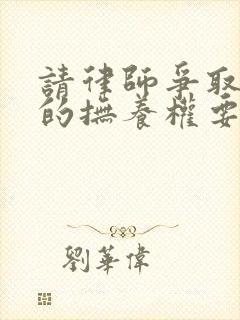 請律師爭取
的撫養權要
劉華偉